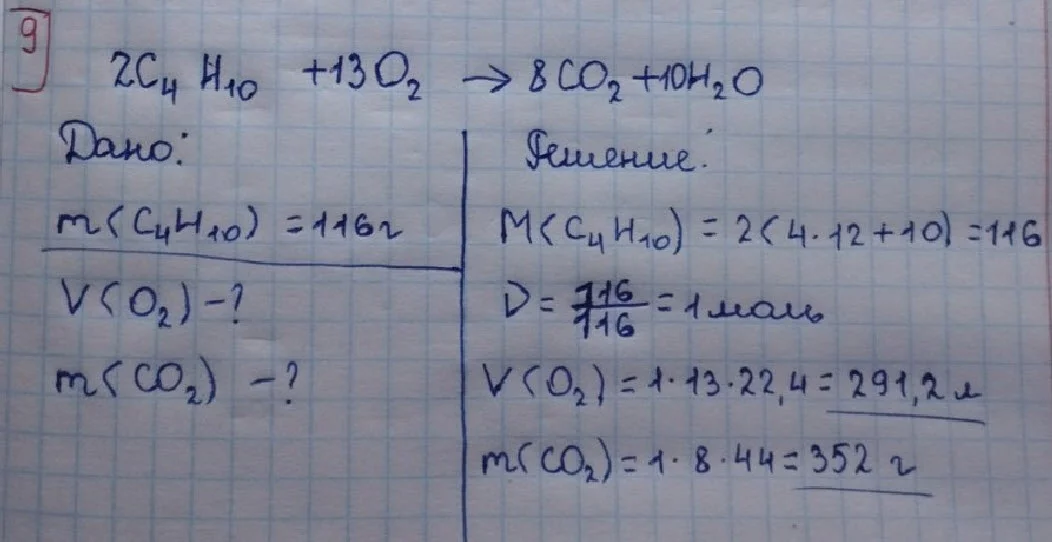 9
2C₄H₁₀ + 13O₂ → 8CO₂ + 10H₂O
Дано:
m(C₄H₁₀) = 116г
V(O₂) - ?
m(CO₂) - ?
Решение:
M(C₄H₁₀) = 2(4·12+10) = 116
ν = 116/116 = 1 моль
V(O₂) = 1·13·22,4 = 291,2 л
m(CO₂) = 1·8·44 = 352 г